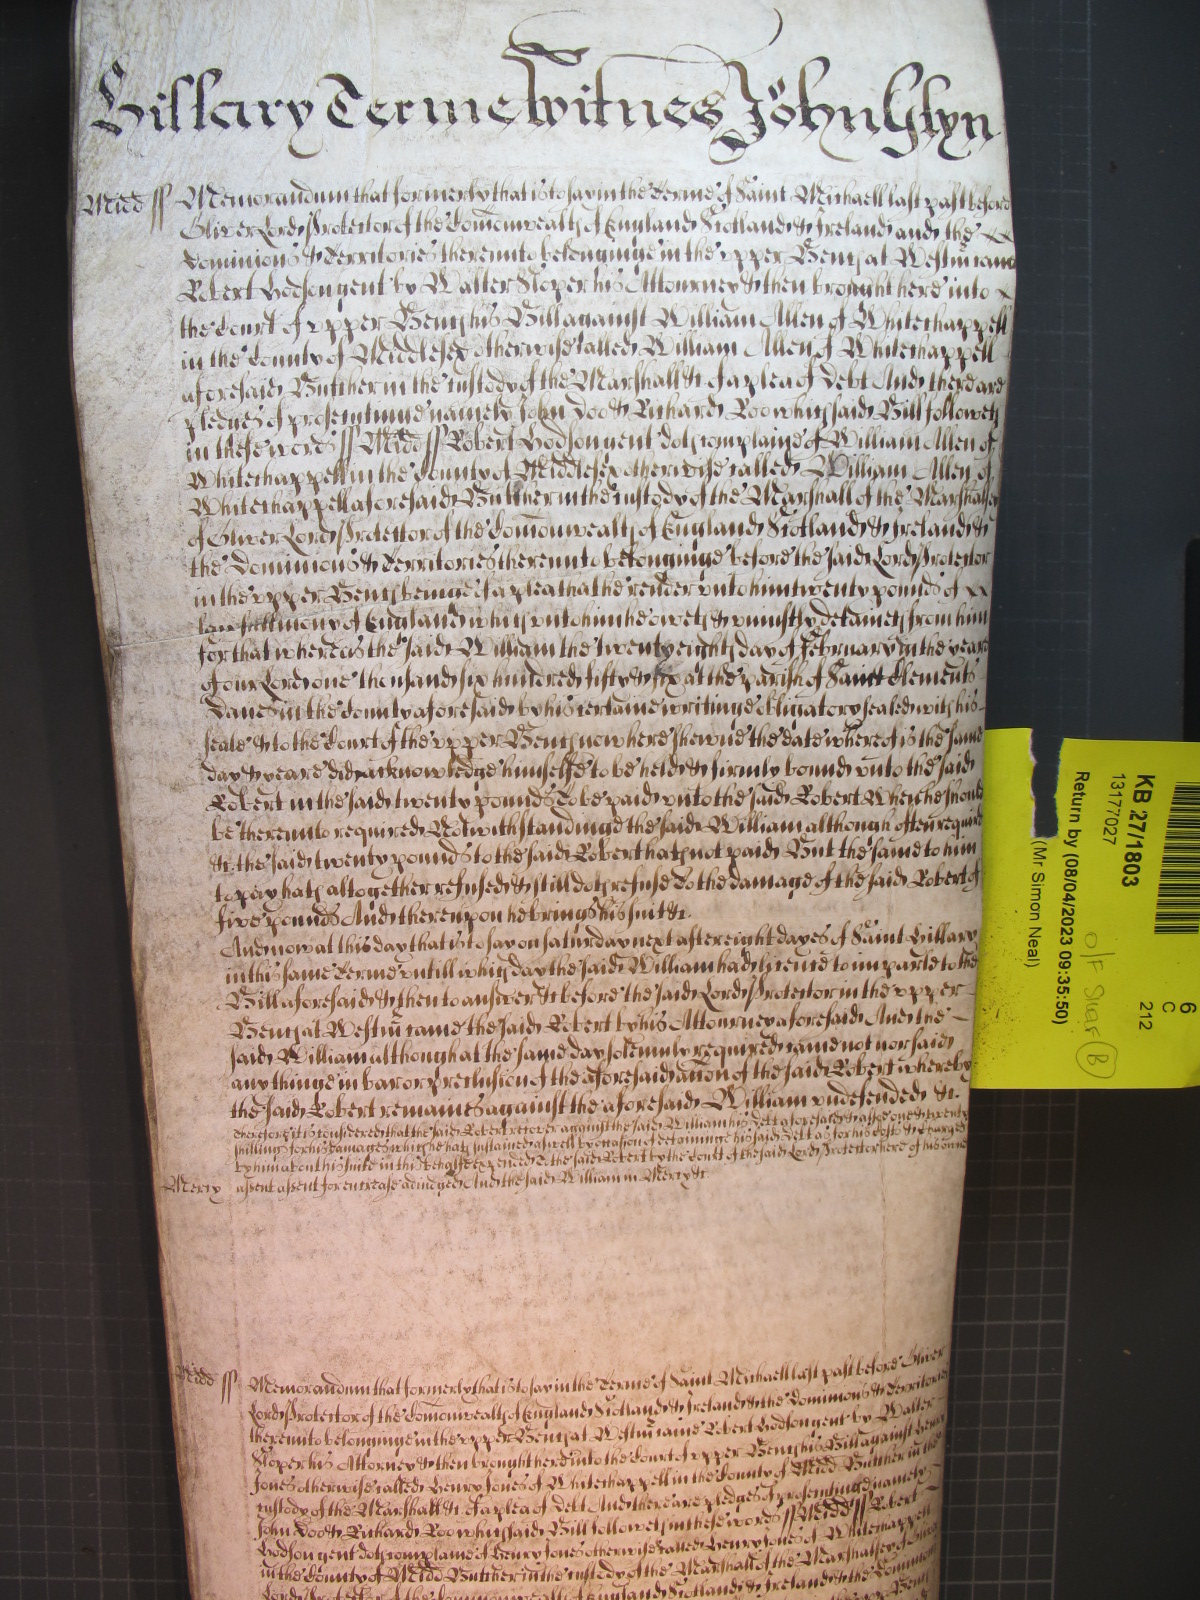 Hillary Terme Witnes John Glyn
Midd ss Memorandum that formerly that is to say in the Terme of Saint Michaell last past before
Oliver Lord Protector of the Comonwealth of England Scotland & Ireland and the
Dominions & Territories thereunto belonginge in the upper Bench at Westm came
Robert Hodson gent by Walter Sloper his Attourney & then brought here into
the Court of upper Bench his Bill against William Allen of Whitechappell
in the County of Middlesex otherwise called William Allen of Whitechappell
aforesaid Butcher in the custody of the Marshall &c of a plea of Debt And there are
pledges of prosecutinge namely John Doo & Richard Roo which said Bill followeth
in these words ss Midd ss Robert Hodson gent doth complaine of William Allen of
Whitechappell in the County of Middlesex otherwise called William Allen of
Whitechappell aforesaid Butcher in the custody of the Marshall of the Marshalsey
of Oliver Lord Protector of the Comonwealth of England Scotland & Ireland &
the Dominions & Territories thereunto belonginge before the said Lord Protector
in the upper Bench beinge of a plea that he render unto him twenty pounds of
lawfull mony of England which unto him he oweth & uniustly detaineth from him
for that whereas the said William the twenty eighth day of February in the yeare
of our Lord one thousand six hundred fifty & six at the parish of Saint Clements
Danes in the County aforesaid by his certaine writinge obligatory sealed with his
seale & to the Court of the upper Bench now here shewne the date whereof is the same
day & yeare did acknowledge himselfe to be held & firmly bound unto the said
Robert in the said twenty pounds To be paid unto the said Robert When he should
be thereunto required Notwithstandinge the said William although often required
&c the said twenty pounds to the said Robert hath not paid But the same to him
to pay hath altogether refused & still doth refuse To the damage of the said Robert of
five pounds And thereupon he brings his suit &c.
And now at this day that is to say on Saturday next after eight dayes of Saint Hillary
in this same Terme untill which day the said William had licence to imparle to the
Bill aforesaid & then to answer &c before the said Lord Protector in the upper
Bench at Westm came the said Robert by his Attourney aforesaid And the
said William although at the same day solemnly required came not nor said
any thinge in bar or preclusion of the aforesaid accon of the said Robert whereby
the said Robert remaines against the aforesaid William undefended &c.
Therefore it is considered that the said Robert recover against the said William his Debt aforesaid & alsoe one & twenty
shillings for his damages which he hath sustained aswell by occasion of detaininge his said Debt as for his Costs & charges
by him about his suite in this behalfe expended To the said Robert by the Court of the said Lord Protector here of his owne
Mercy assent assent for encrease adiudged And the said William in Mercy &c.
Midd ss Memorandum that formerly that is to say in the Terme of Saint Michaell last past before Oliver
Lord Protector of the Comonwealth of England Scotland & Ireland & the Dominions & Territories
thereunto belonginge in the upper Bench at Westm came Robert Hodson gent by Walter
Sloper his Attourney & then brought here into the Court of upper Bench his Bill against Henry
Jones otherwise called Henry Jones of Whitechappell in the County of Midd Butcher in the
custody of the Marshall &c of a plea of Debt And there are pledges of prosecutinge namely
John Doo & Richard Roo which said Bill followeth in these words ss Midd ss Robert
Hodson gent doth complaine of Henry Jones otherwise called Henry Jones of Whitechappell
in the County of Midd Butcher in the custody of the Marshall of the Marshalsey of Oliver
Lord Protector of the Comonwealth of England Scotland & Ireland & the Dominions
KB 27/1803
13177027
Return by (08/04/2023 09:35:50)
(Mr Simon Neal)
6
C
212
O/F Shelf B